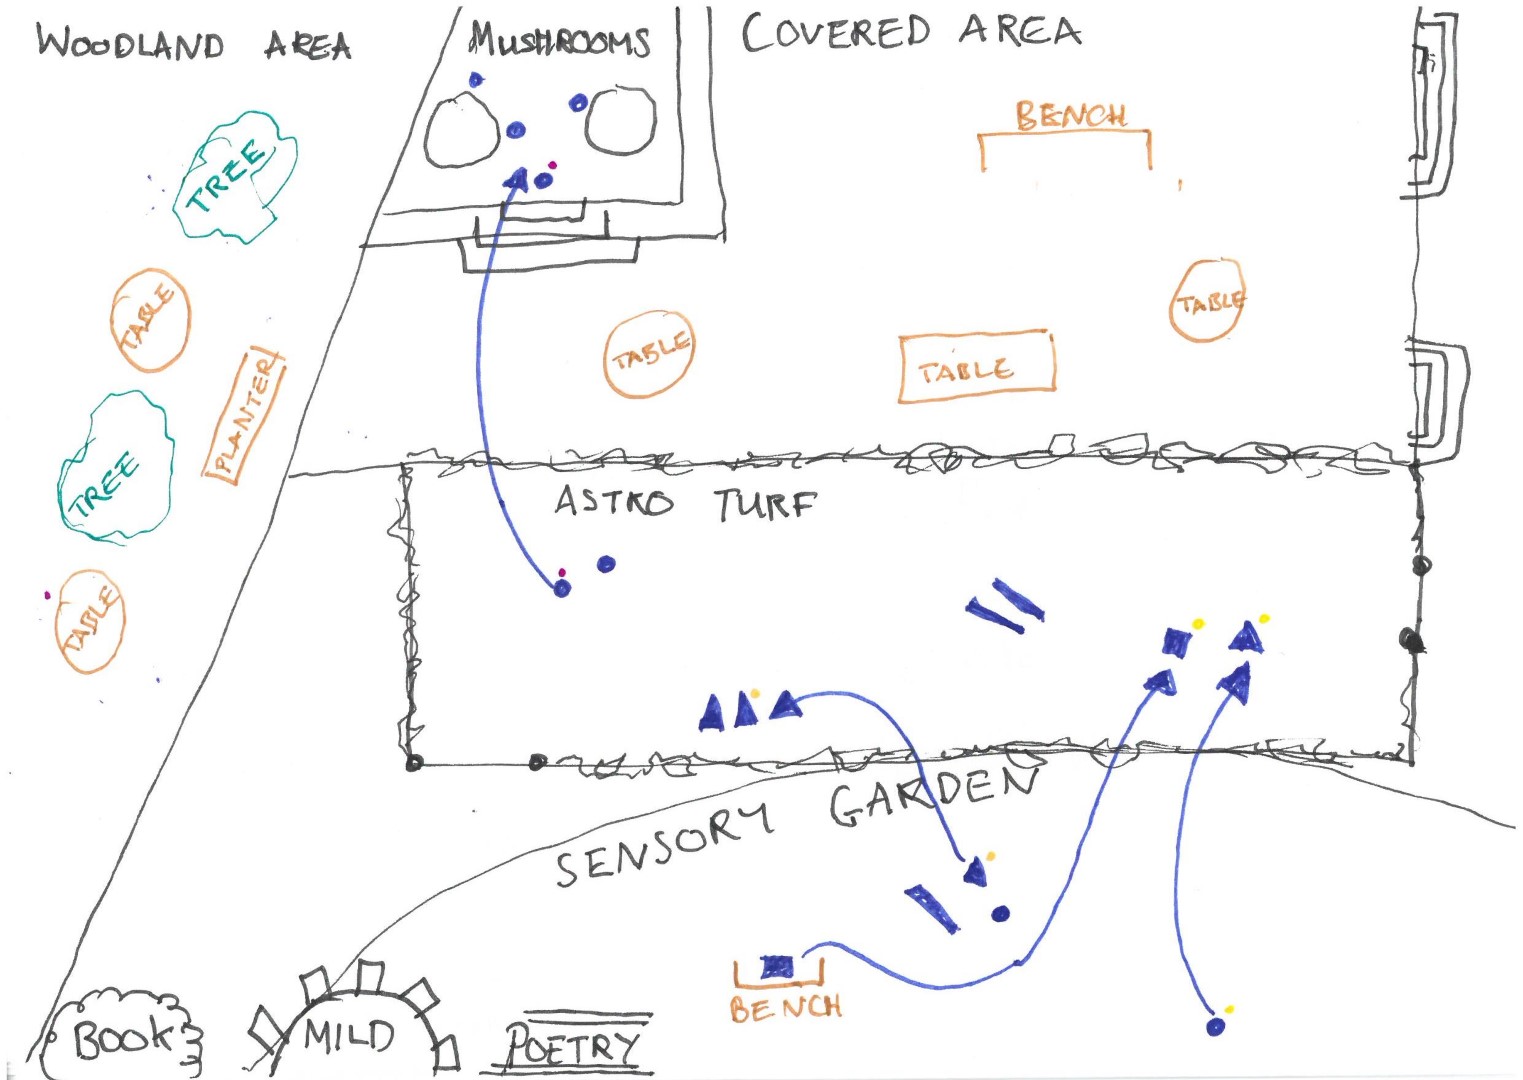 WOODLAND AREA
MUSHROOMS
COVERED AREA
BENCH
TREE
TABLE
TABLE
TABLE
TABLE
PLANTER
TREE
ASTRO TURF
TABLE
SENSORY GARDEN
BENCH
BOOK
MILD
POETRY